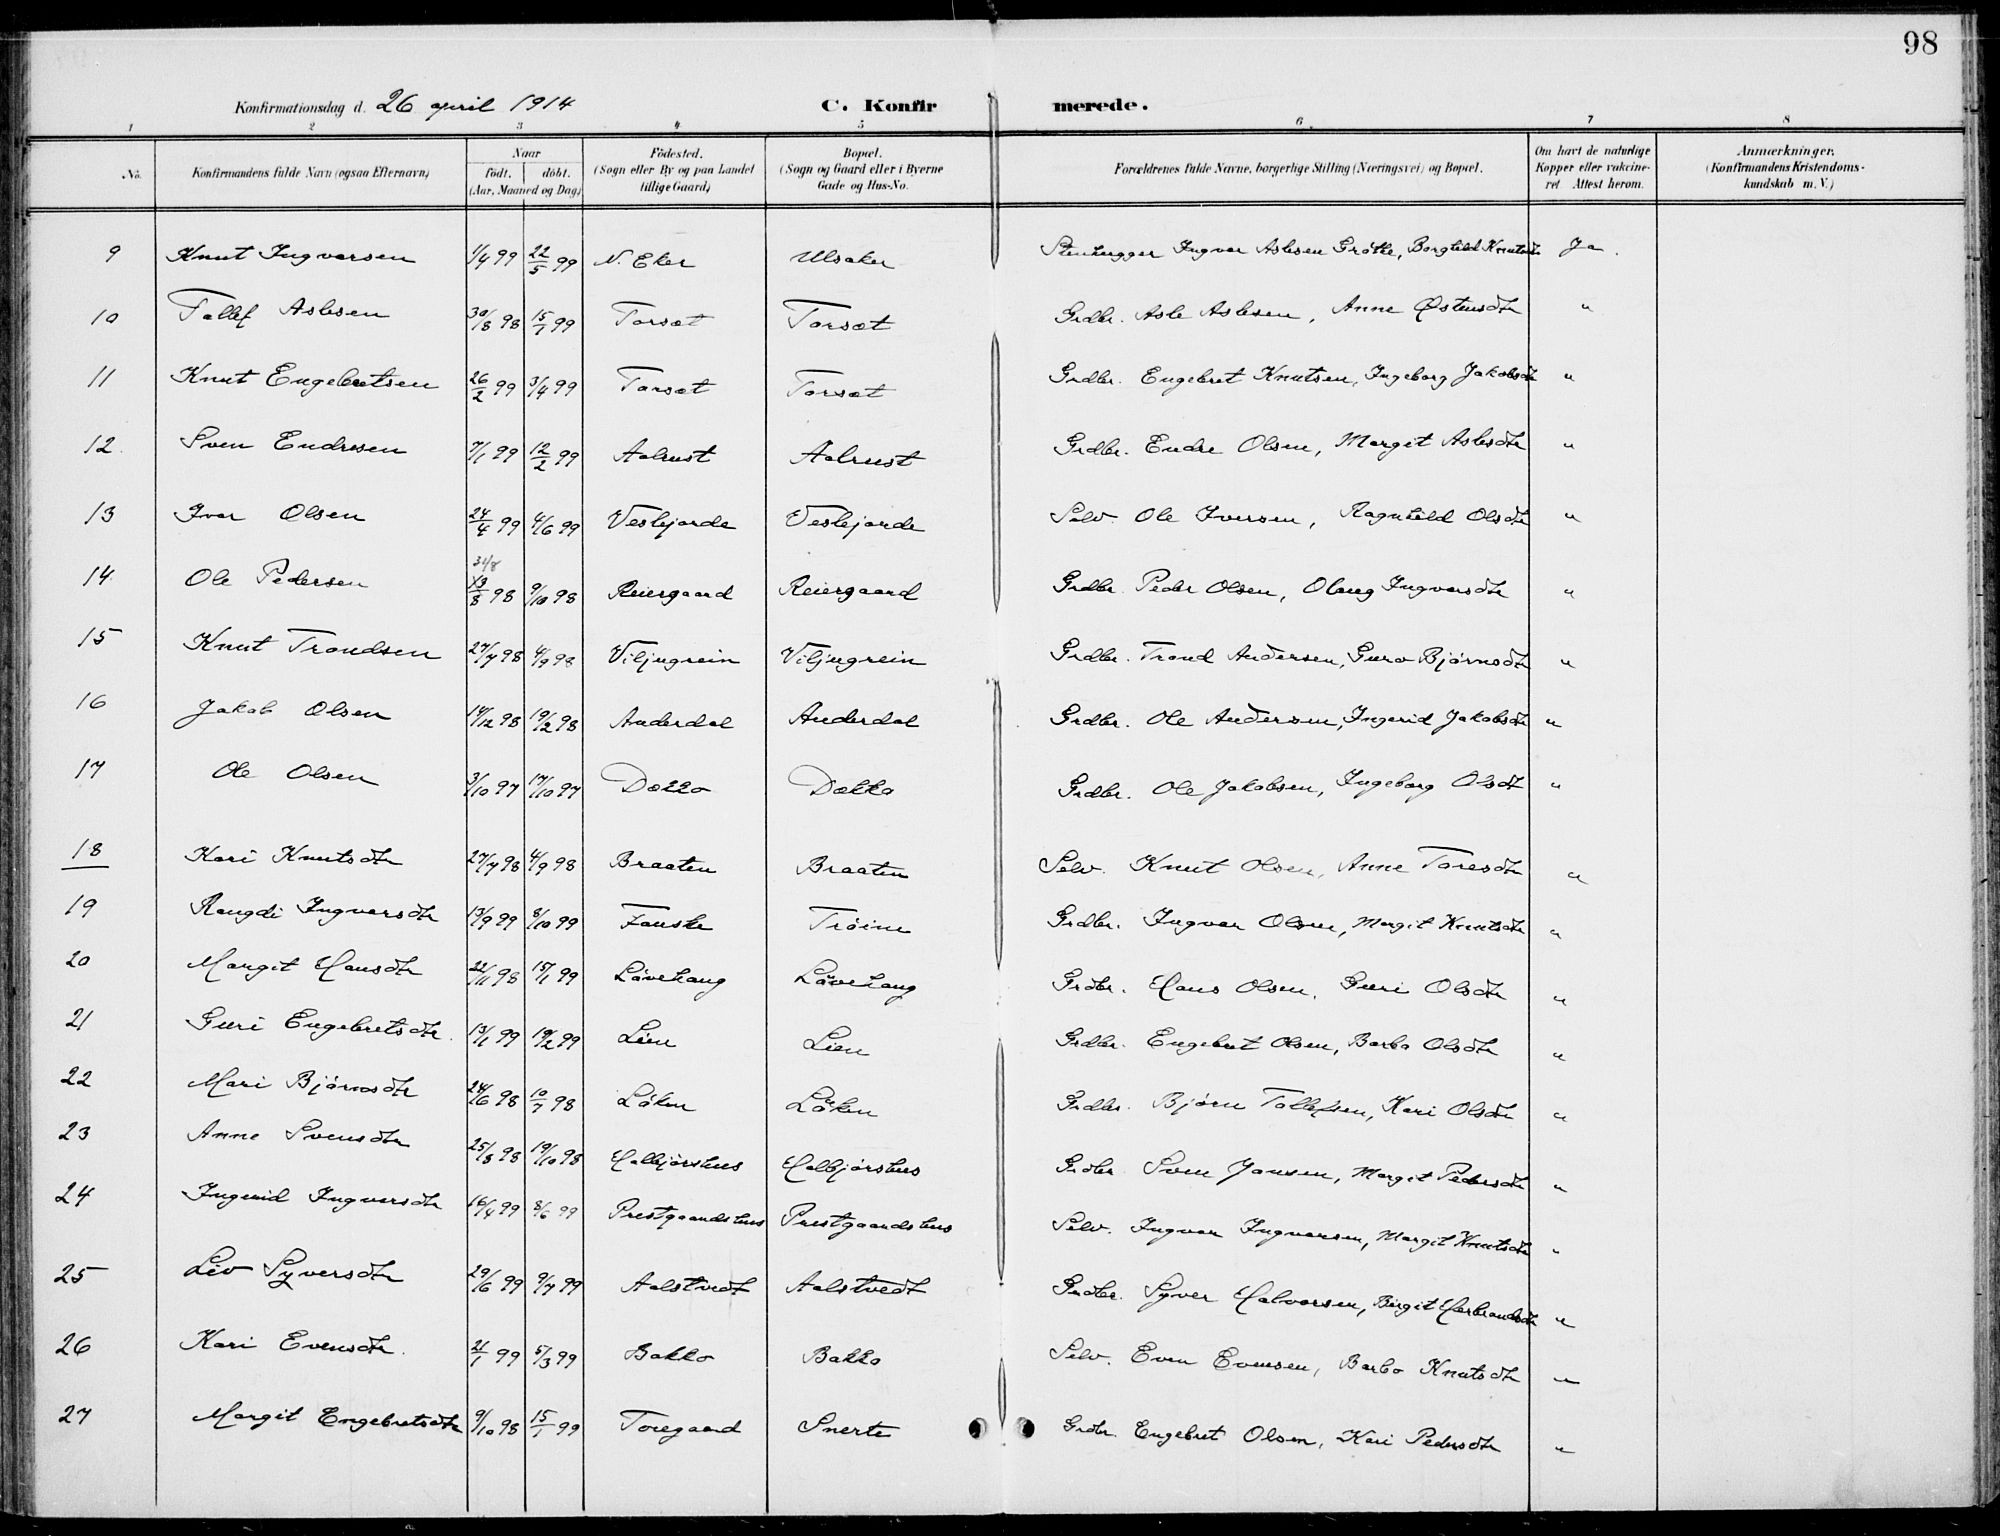 98
Konfirmationsdag d. 26 april 1914 C. Konfirmerede.
1 2 3 4 5 6 7 8
No. Konfirmandens fulde Navn (ogsaa Efternavn) Naar født. døbt. (Aar, Maaned og Dag) Fødested. (Sogn eller By og paa Landet tillige Gaard) Bopæl. (Sogn og Gaard eller i Byerne Gade og Hus-No. Forældrenes fulde Navne, borgerlige Stilling (Næringsvei) og Bopæl. Om havt de naturlige Kopper eller vakcineret. Attest herom. Anmærkninger. (Konfirmandens Kristendomskundskab m. V.)
9 Knut Ingvarsen 1/4 99 22/5 99 N. Eker Ulsaker Stenhugger Ingvar Aslesen Grøtte, Borghild Knutsdtr Ja.
10 Tollef Aslesen 30/8 98 15/1 99 Torset Torset Grdbr. Asle Aslesen, Anne Østensdtr "
11 Knut Engebretsen 26/2 99 3/4 99 Torset Torset Grdbr. Engebret Knutsen, Ingeborg Jakobsdtr "
12. Sven Endresen 7/1 99 12/2 99 Aalrust Aalrust Grdbr. Endre Olsen, Margit Aslesdtr "
13 Ivar Olsen 24/4 99 4/6 99 Veslejorde Veslejorde Selv. Ole Iversen, Ragnhild Olsdtr "
14 Ole Pedersen 31/8 13/8 98 9/10 98 Reiergaard Reiergaard Grdbr. Peder Olsen, Olaug Ingvarsdtr "
15 Knut Trondsen 27/7 98 4/9 98 Viljugrein Viljugrein Grdbr. Trond Andersen, Guro Bjørnsdtr "
16 Jakob Olsen 14/12 98 19/2 98 Anderdal Anderdal Grdbr. Ole Andersen, Ingerid Jakobsdtr "
17 Ole Olsen 3/10 97 17/10 97 Dokko Dokko Grdbr. Ole Jakobsen, Ingeborg Olsdtr "
18 Kari Knutsdtr 27/7 98 4/9 98 Braaten Braaten Selv. Knut Olsen, Anne Toresdtr "
19 Rangdi Ingvarsdtr 13/9 99 8/10 99 Fauske Trøim Grdbr. Ingvar Olsen, Margit Knutsdtr "
20 Margit Hansdtr 22/11 98 15/1 99 Løvehaug Løvehaug Grdbr. Hans Olsen, Guri Olsdtr "
21 Guri Engebretsdtr. 13/1 99 19/2 99 Lien Lien Grdbr. Engebret Olsen, Barbo Olsdtr "
22 Mari Bjørnsdtr 24/6 98 10/7 98 Løken Løken Grdbr. Bjørn Tollefsen, Kari Olsdtr "
23 Anne Svensdtr 25/8 98 19/10 98 Halbjørshus Halbjørshus Grdbr. Sven Jansen, Margit Pedersdtr "
24 Ingerid Ingvarsdtr 16/4 99 8/6 99 Prestgaardshus Prestgaardshus Selv. Ingvar Ingvarsen, Margit Knutsdtr "
25 Liv Syversdtr 29/6 99 9/7 99 Aalstvedt Aalstvedt Grdbr. Syver Halvorsen, Birgit Herbrandsdtr "
26 Kari Evensdtr. 21/1 99 5/3 99 Bakko Bakko Selv. Even Evensen, Barbo Knutsdtr "
27 Margit Engebretsdtr 9/10 98 15/1 99 Toregaard Snerte Grdbr. Engebret Olsen, Kari Pedersdtr "